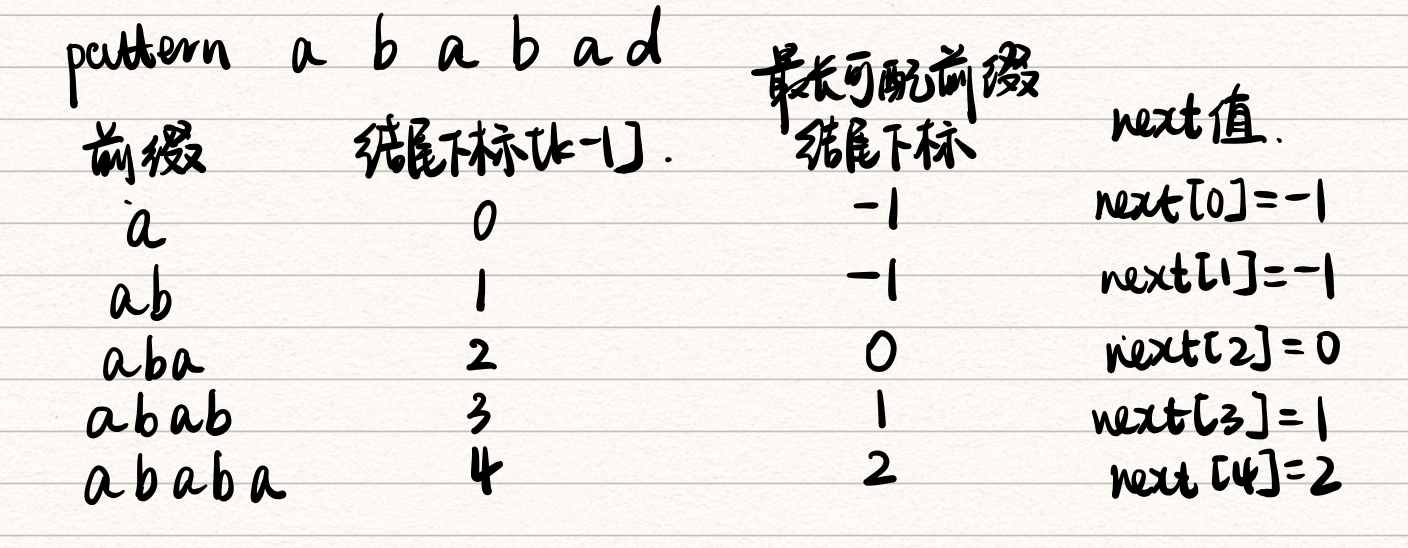 pattern a b a b a d
前缀 结尾下标[k-1]. 最长可配前缀结尾下标 next值.
a 0 -1 next[0]=-1
ab 1 -1 next[1]=-1
aba 2 0 next[2]=0
abab 3 1 next[3]=1
ababa 4 2 next[4]=2